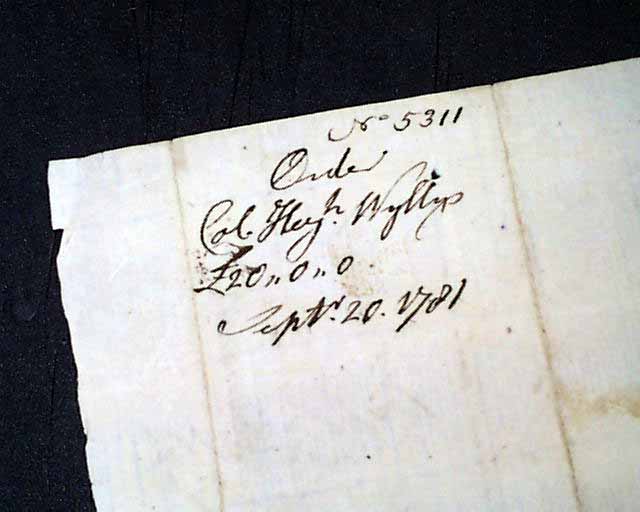 No 5311
Order
Col. Hezh. Wyllys
£20,,0,,0
Septr. 20. 1781